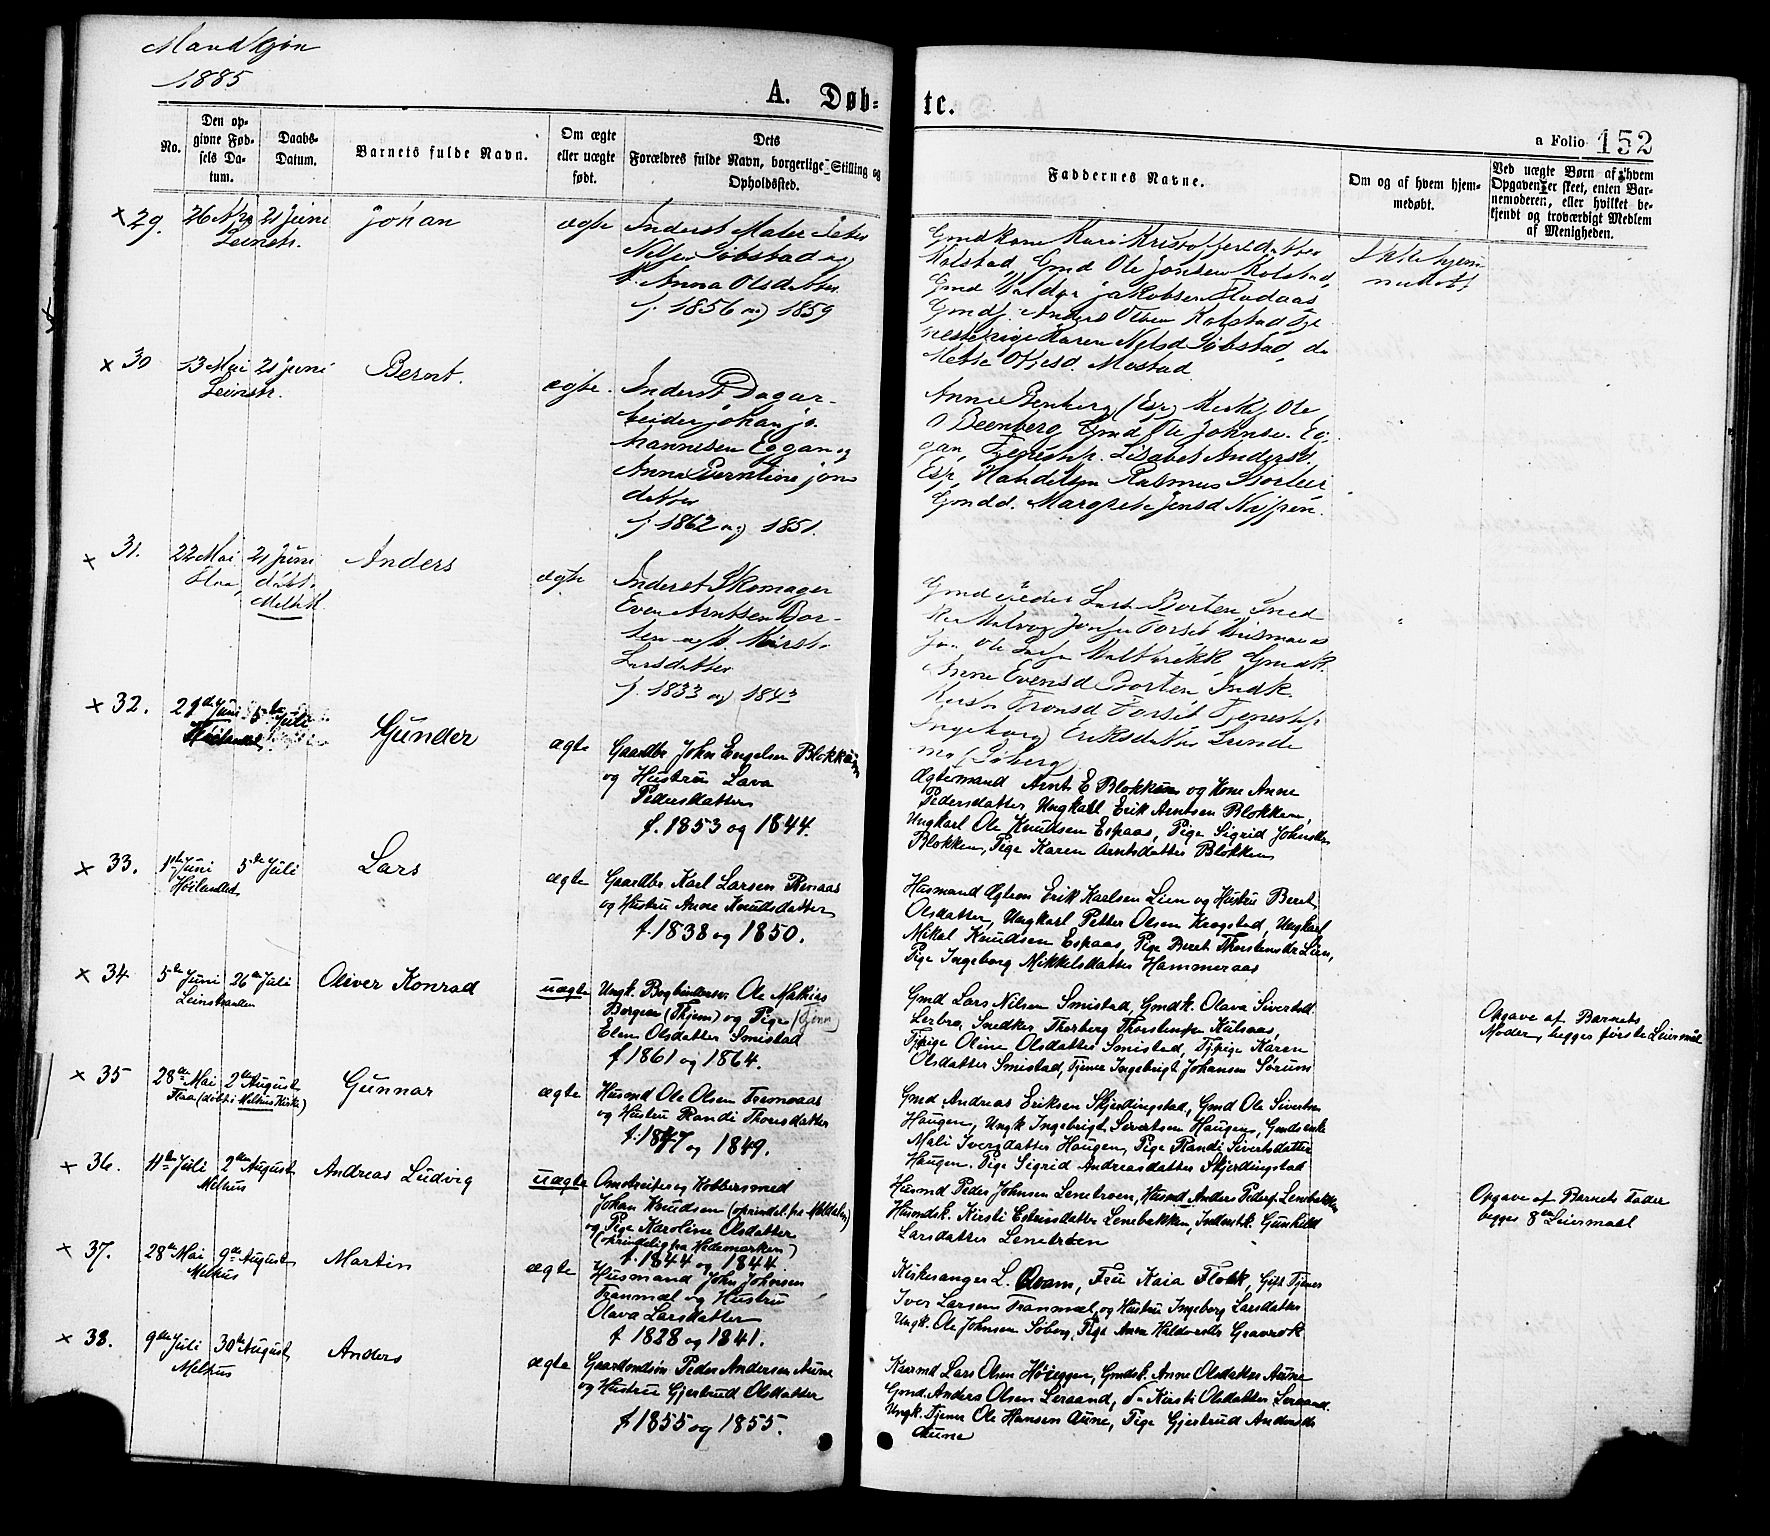 Mandkjøn
1885
A. Døb-
te.
a Folio 152
No.
Den op-
givne Fød-
sels Da-
tum.
Daabs-
Datum.
Barnets fulde Navn.
Om ægte
eller uægte
født.
Dets
Forældres fulde Navn, borgerlige Stilling og
Opholdssted.
Faddernes Navne.
Om og af hvem hjem-
medøbt.
Ved uægte Børn af hvem
Opgaven er skeet, enten Bar-
nemoderen, eller hvilket be-
kjendt og troværdigt Medlem
af Menigheden.
× 29.
Leinstr.
21 Juni
Johan
ægte
Søbstad og
Anna Olsdatter
f. 1856 og 1859
Gmdkone Kari Kristoffersdatter
Kolstad, Gmd Ole Jonsen Kolstad,
Gmd Haldor Jakobsen Fladaas
Gmds. Anders Olsen Kolstad Tje
nestepige Karen Nelsd Søbstad, do
Mette Mostad
Ikke hjem
medøbt
× 30
13 Mai
Leinstr.
21 Juni
Bernt.
ægte.
Inderst Dagar-
beider Johan Jo-
hannesen Eggan og
Anna Berntine Jons
datter
f. 1862 og 1851.
O Beenberg, Gmd Ole Johnsen Eg-
gan, Tjenestp. Lisabet Andersd.
Esp, Handelsm Rasmus Storlier
Gmdd. Margrete Jensd Nypen.
× 31.
22 Mai
Flaa,
21 Juni
døbt i
Melh. K.
Anders
ægte
Inderst Skomager
Even Arntsen Bor-
ten og K. Kirsti
Larsdatter
f. 1833 og 1843
Lars Borten
Anne Evensd Borten Indk.
Forset Tjenestp.
Ingeborg Eriksdatter Lunde
mo (Søberg)
× 32.
21de Juni
Høilandet
5te Juli
Gunder
ægte
Gaardbr John Engelsen Blokkum
og Hustru Lava
Pedersdatter
f. 1853 og 1844.
Ægtemand Arnt E Blokkum og Kone Anne
Pedersdatter Ungkarl Erik Arntsen Blokkum,
Ungkarl Ole Knudsen Espaas, Pige Sigrid Johnsdtr
Blokkum, Pige Karen Arntsdatter Blokkum
× 33.
1ste Juni
Høilandet
5te Juli
Lars
ægte
Gaardbr. Karl Larsen Renaas
og Hustru Anne Knudsdatter
f. 1838 og 1850.
Husmand Ægtem Erik Karlsen Lien og Hustru Beret
Olsdatter, Ungkarl Petter Olsen Krogstad, Ungkarl
Mikal Knudsen Espaas, Pige Beret Thorstensdtr Lien,
Pige Ingeborg Mikkelsdatter Hammeraas
× 34
5te Juni
Leinstranden
26de Juli
Oliver Konrad
uægte
Ungk. Bogbinder Ole Mathias
Borgen (Thjem) og Pige (Tjem)
Elen Olsdatter Smistad
f. 1861 og 1864.
Gmd Lars Nilsen Smistad, Gmdk. Olava Sivertsd.
Lerbro, Snedker Thorberg Thorstensen Kulsaas,
Tjpige Oline Olsdatter Smistad, Tjpige Karen
Olsdatter Smistad, Tjener Ingebrigt Johansen Sørum
Opgave af Barnets
Moder, begges første Leiermaal
× 35
28de Mai
Flaa (døbt i Melhus Kirke)
2den August
Gunnar
ægte
Husmd Ole Olsen Tremoaas
og Hustru Randi Thoresdatter
f. 1847 og 1849.
Gmd Andreas Eriksen Skjerdingstad, Gmd Ole Sivertsen
Haugen, Ungk Ingebrigt Sivertsen Haugen, Gmdsenke
Mali Iversdatter Haugen, Pige Randi Sivertsdatter
Haugen. Pige Sigrid Andreasdatter Skjerdingstad
× 36.
11te Juli
Melhus
2den August
Andreas Ludvig
uægte
Omstreifer og Kobbersmed
Johan Knudsen (oprindel. fra Meldalen)
og Pige Karoline Olsdatter
(oprindelig fra Hedemarken)
f. 1844 og 1844
Husmd Peder Johnsen Lenebroen, Husmd Anders Peders. Lenebakken
Husmdsk. Kirsti Estensdatter Lenebakken Inderstk. Gunhild
Larsdatter Lenebroen
Opgave af Barnets Fader
begges 8de Leiermaal
× 37.
28de Mai
Melhus
9de August
Martin
ægte
Husmand John Johnsen
Tranmæl og Hustru
Olava Larsdatter
f. 1828 og 1841.
Kirkesanger L. Qvam, Fru Kaia Flock, Gift Tjener
Iver Larsen Tranmæl og Hustru Ingeborg Larsdatter
Ungk. Ole Johnsen Søberg, Pige Anne Haldorsdtr Gravrok
× 38.
9de Juli
Melhus
30te August
Anders
ægte
Gaardmdsøn Peder Andersen Aune
og Hustru Gjertrud Olsdatter
f. 1855 og 1855.
Kaarmd Lars Olsen Høieggen, Gmdsk. Anne Olsdatter Aune
Gmd. Anders Olsen Leraand, do Kirsti Olsdatter Leraand.
Ungk. Tjener Ole Hansen Aune, Pige Gjertrud Andersdtr
Aune